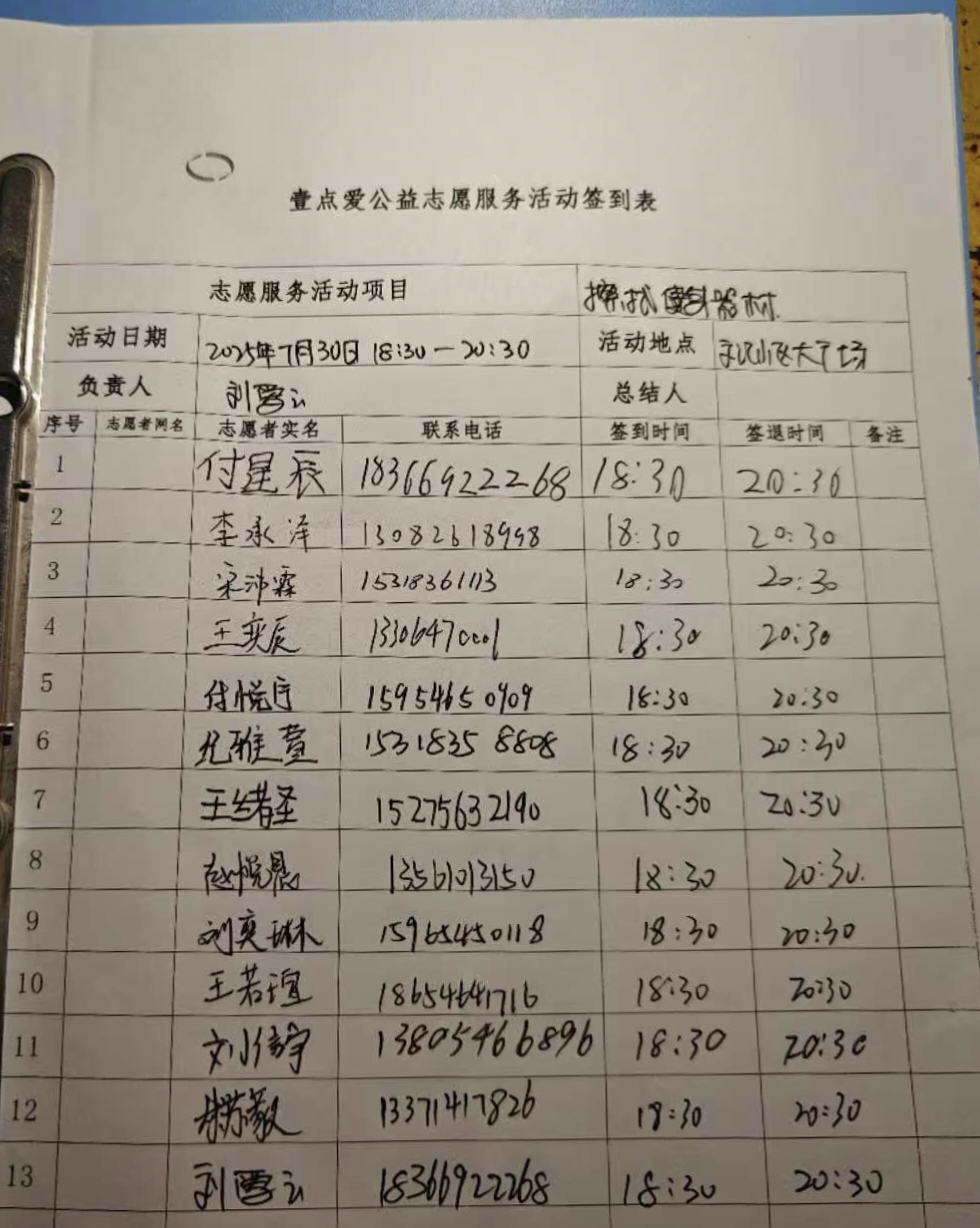 壹点爱公益志愿服务活动签到表
志愿服务活动项目 擦拭健身器材
活动日期 2025年7月30日 18:30-20:30 活动地点 大广场
负责人 刘雪云 总结人
序号 志愿者网名 志愿者实名 联系电话 签到时间 签退时间 备注
1 付星辰 18366922268 18:30 20:30
2 李承泽 13082618998 18:30 20:30
3 宋沛霖 15318361113 18:30 20:30
4 王奕辰 13306470001 18:30 20:30
5 付悦宁 15954650909 18:30 20:30
6 雅萱 15318358808 18:30 20:30
7 王绪圣 15275632190 18:30 20:30
8 赵悦晨 13561013150 18:30 20:30.
9 刘奕琳 15965450118 18:30 20:30
10 王若瑄 18654641716 18:30 20:30
11 刘倚宇 13805466896 18:30 20:30
12 13371417826 18:30 20:30
13 刘雪云 18366922268 18:30 20:30